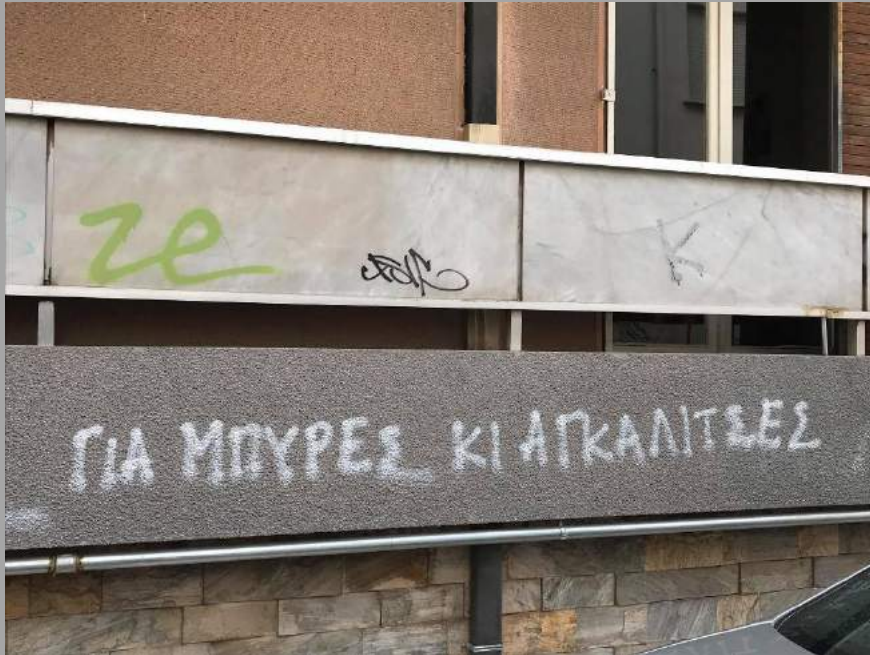 ze
K
ΓΙΑ ΜΠΥΡΕΣ ΚΙ ΑΓΚΑΛΙΤΣΕΣ